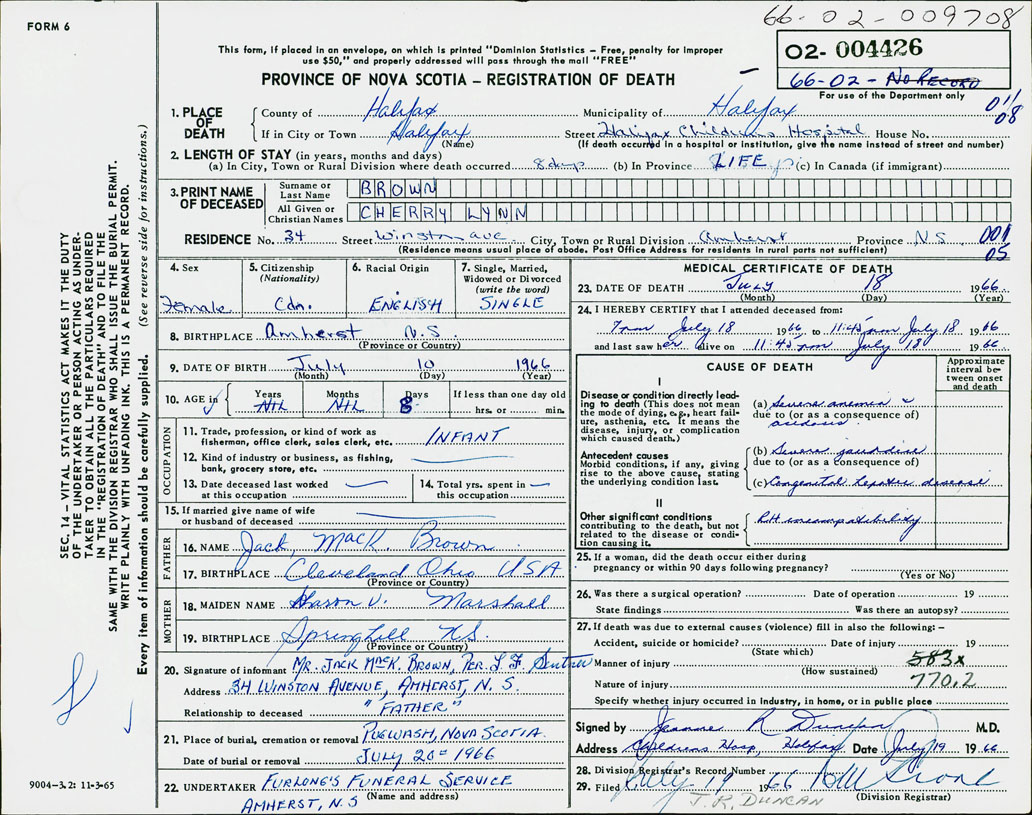 66-02-009708
FORM 6
02-004426
66-02- NO RECORD
For use of the Department only
This form, if placed in an envelope, on which is printed "Dominion Statistics – Free, penalty for improper
use $50," and properly addressed will pass through the mail "FREE"
PROVINCE OF NOVA SCOTIA – REGISTRATION OF DEATH
011
08
1. PLACE OF DEATH
County of Halifax Municipality of Halifax
If in City or Town Halifax Street Halifax Childrens Hospital House No.
(Name) (If death occurred in a hospital or institution, give the name instead of street and number)
2. LENGTH OF STAY (in years, months and days)
(a) In City, Town or Rural Division where death occurred 8 days (b) In Province LIFE (c) In Canada (if immigrant)
3. PRINT NAME OF DECEASED
Surname or Last Name BROWN
All Given or Christian Names CHERRY LYNN
RESIDENCE No. 34 Street Winston ave. City, Town or Rural Division Amherst Province N.S. 001
(Residence means usual place of abode. Post Office Address for residents in rural parts not sufficient) 05
4. Sex Female
5. Citizenship (Nationality) Cdn.
6. Racial Origin ENGLISH
7. Single, Married, Widowed or Divorced (write the word) SINGLE
8. BIRTHPLACE Amherst N.S.
(Province or Country)
9. DATE OF BIRTH July 10 1966
(Month) (Day) (Year)
10. AGE in Years NIL Months NIL Days 8 If less than one day old hrs. or min.
OCCUPATION
11. Trade, profession, or kind of work as fisherman, office clerk, sales clerk, etc. INFANT
12. Kind of industry or business, as fishing, bank, grocery store, etc.
13. Date deceased last worked at this occupation
14. Total yrs. spent in this occupation
15. If married give name of wife or husband of deceased
FATHER
16. NAME Jack, Mack. Brown
17. BIRTHPLACE Cleveland Ohio USA
(Province or Country)
MOTHER
18. MAIDEN NAME V. Marshall
19. BIRTHPLACE Springhill N.S.
(Province or Country)
20. Signature of informant MR. JACK MACK. BROWN, PER.
Address 34 WINSTON AVENUE, AMHERST, N.S.
Relationship to deceased "FATHER"
21. Place of burial, cremation or removal PUGWASH, NOVA SCOTIA
Date of burial or removal JULY 20th 1966
22. UNDERTAKER FURLONG'S FUNERAL SERVICE
(Name and address)
AMHERST, N.S
MEDICAL CERTIFICATE OF DEATH
23. DATE OF DEATH July 18 1966
(Month) (Day) (Year)
24. I HEREBY CERTIFY that I attended deceased from:
July 18 1966 to 11:45 pm July 18 1966
and last saw her alive on 11:45 pm July 18 1966
CAUSE OF DEATH
Approximate interval between onset and death
I
Disease or condition directly leading to death (This does not mean the mode of dying, e.g., heart failure, asthenia, etc. It means the disease, injury, or complication which caused death.)
(a) Severe anemia c
due to (or as a consequence of)
acidosis
Antecedent causes
Morbid conditions, if any, giving rise to the above cause, stating the underlying condition last.
(b) Severe jaundice
due to (or as a consequence of)
(c) Congenital hepatic disease
II
Other significant conditions
contributing to the death, but not related to the disease or condition causing it.
RH incompatibility
25. If a woman, did the death occur either during
pregnancy or within 90 days following pregnancy?
(Yes or No)
26. Was there a surgical operation? Date of operation 19
State findings Was there an autopsy?
27. If death was due to external causes (violence) fill in also the following:–
Accident, suicide or homicide? Date of injury 19
(State which)
Manner of injury 583x
(How sustained)
Nature of injury 770.2
Specify whether injury occurred in Industry, in home, or in public place
Signed by Jeanne R Duncan M.D.
Address Childrens Hosp, Halifax Date July 19 1966
28. Division Registrar's Record Number
29. Filed July 19 1966
(Division Registrar)
J.R. DUNCAN
SEC. 14 – VITAL STATISTICS ACT MAKES IT THE DUTY
OF THE UNDERTAKER OR PERSON ACTING AS UNDER-
TAKER TO OBTAIN ALL THE PARTICULARS REQUIRED
IN THE "REGISTRATION OF DEATH" AND TO FILE THE
SAME WITH THE DIVISION REGISTRAR WHO SHALL ISSUE THE BURIAL PERMIT.
WRITE PLAINLY WITH UNFADING INK. THIS IS A PERMANENT RECORD.
Every item of information should be carefully supplied. (See reverse side for instructions.)
9004-3.2: 11-3-65